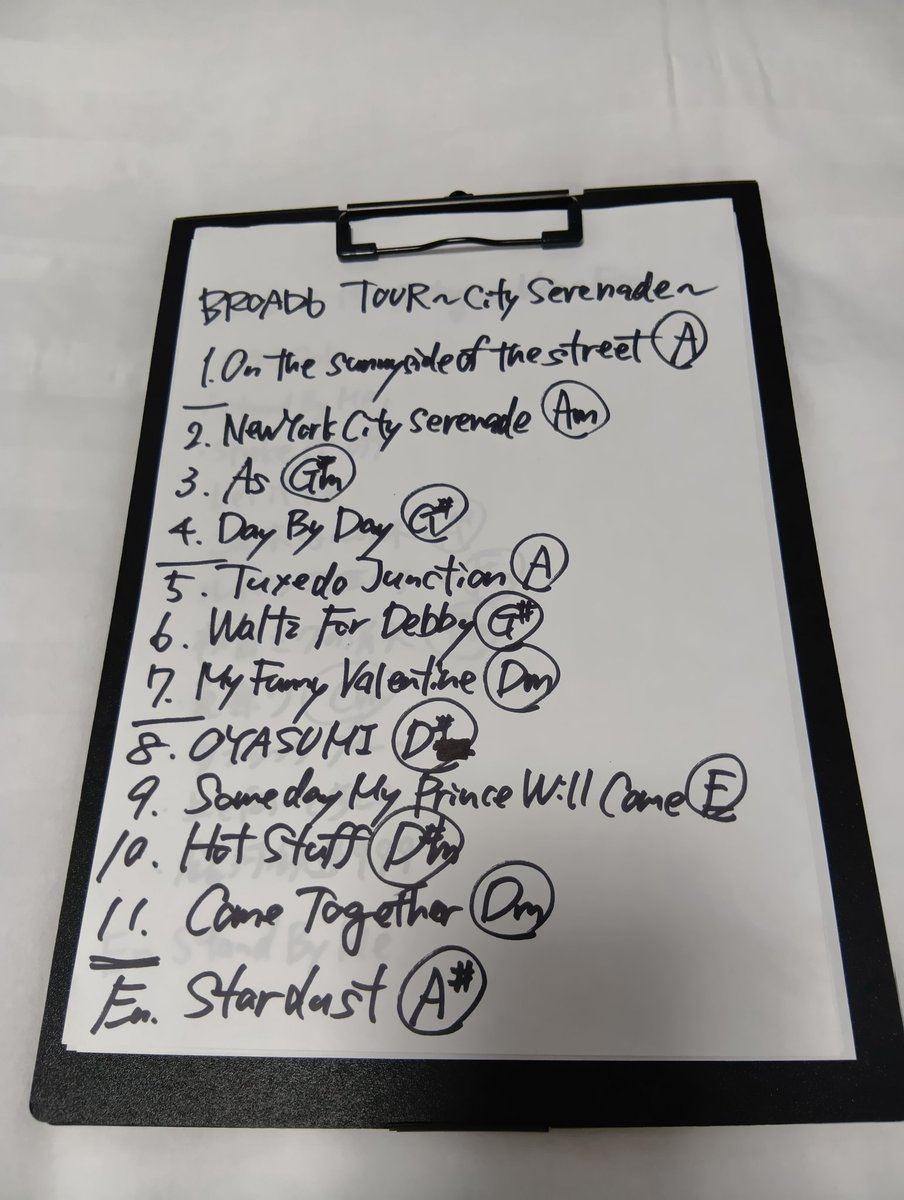 BROAD6 TOUR~City Serenade~
1. On the sunnyside of the street A
2. New York City Serenade Am
3. As G#m
4. Day By Day G#
5. Tuxedo Junction A
6. Waltz For Debby G#
7. My Funny Valentine Dm
8. OYASUMI D#
9. Someday My Prince Will Come E
10. Hot Stuff D#m
11. Come Together Dm
En. Stardust A#